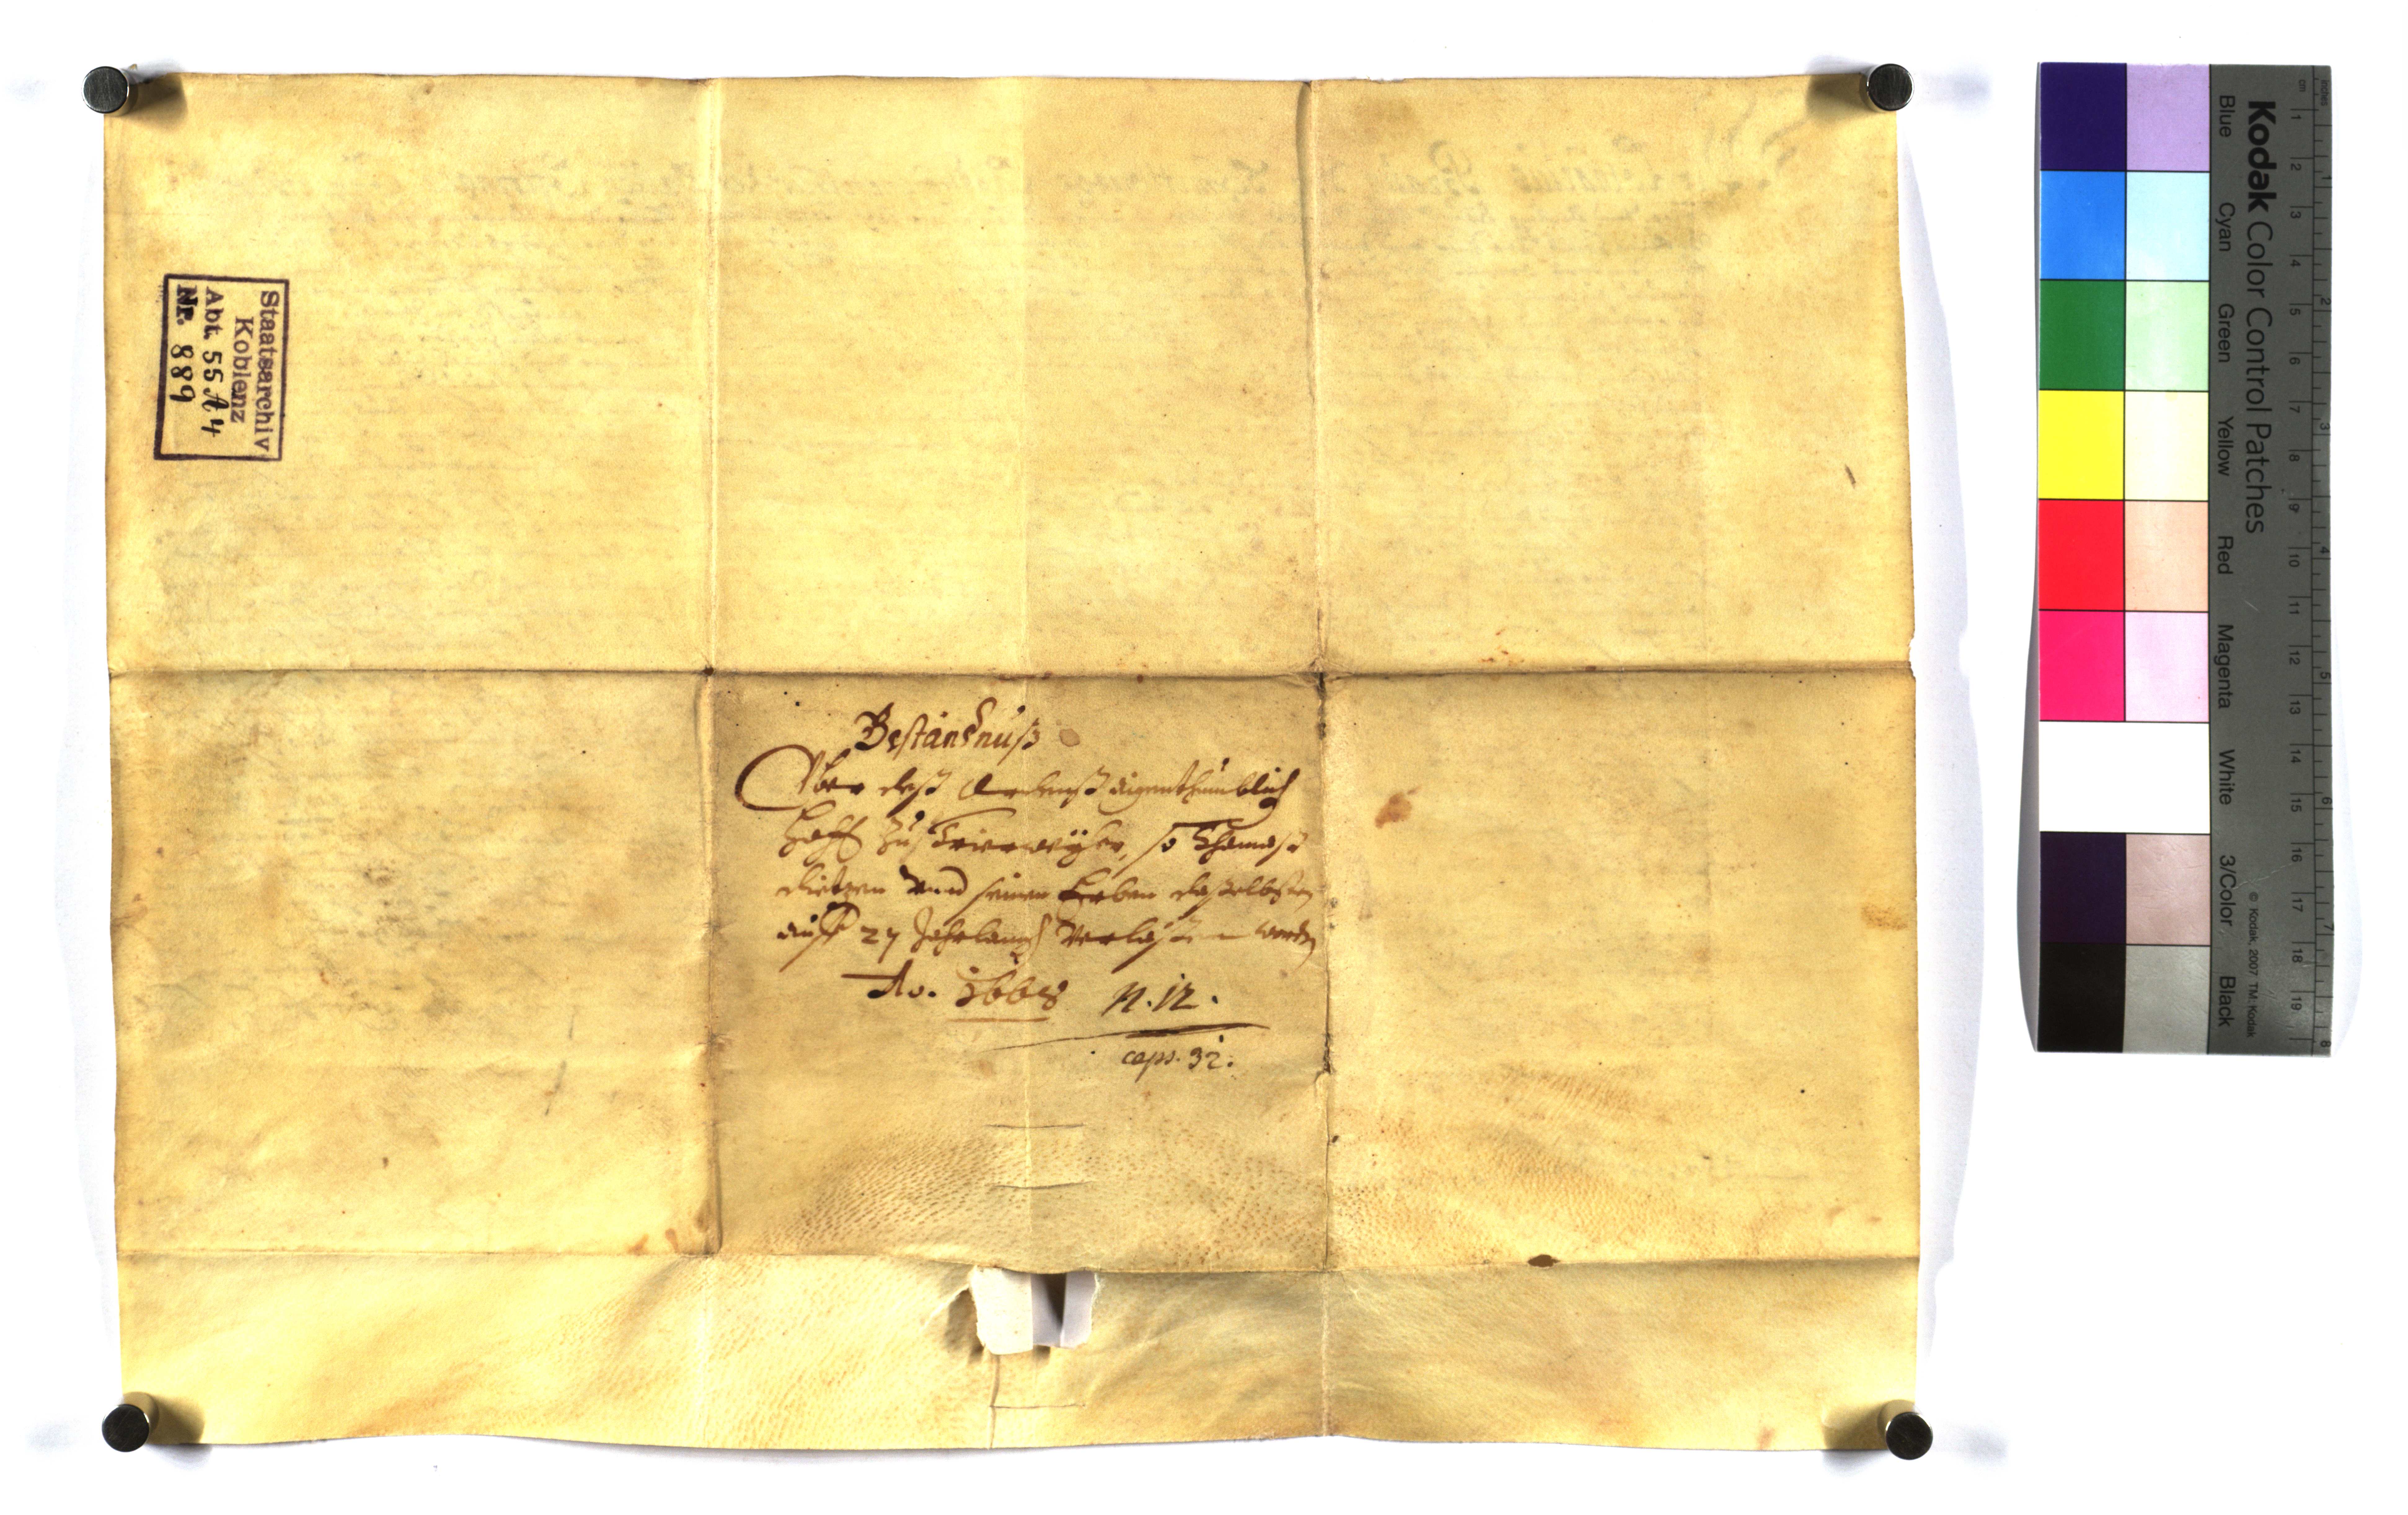 Bestandnuß
Uber deß Ordenß aigenthumblich
Hoff zu Trierweyler, so Thomaß
dietzen vnd seinen Erben daselbsten
auff 27 Jahrlang Verlaßen worden
Ao. 1668 N. 12.
caps. 32.
Staatsarchiv
Koblenz
Abt. 55 A 4
Nr. 889
Kodak Color Control Patches
Blue Cyan Green Yellow Red Magenta White 3/Color Black
© Kodak, 2007 TM: Kodak
cm 1 2 3 4 5 6 7 8 9 10 11 12 13 14 15 16 17 18 19
inches 1 2 3 4 5 6 7 8